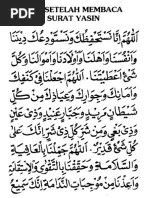 SETELAH MEMBACA
SURAT YASIN
اَللّٰهُمَّ اِنَّا نَسْتَحْفِظُكَ وَنَسْتَوْدِعُكَ دِيْنَنَا
وَاَنْفُسَنَا وَاَهْلَنَا وَاَوْلَادَنَا وَاَمْوَالَنَا وَكُلَّ
شَيْءٍ اَعْطَيْتَنَا. اَللّٰهُمَّ اجْعَلْنَا فِيْ كَنَفِكَ
وَاَمَانِكَ وَجِوَارِكَ وَعِيَاذِكَ مِنْ كُلِّ
شَيْطَانٍ مَرِيْدٍ وَجَبَّارٍ عَنِيْدٍ وَذِيْ عَيْنٍ
وَذِيْ بَغْيٍ وَمِنْ شَرِّ كُلِّ ذِيْ شَرٍّ اِنَّكَ عَلٰى
كُلِّ شَيْءٍ قَدِيْرٌ. اَللّٰهُمَّ جَمِّلْنَا بِالْعَافِيَةِ
وَالسَّلَامَةِ وَحَقِّقْنَا بِالتَّقْوٰى وَالْاِسْتِقَامَةِ
وَاَعِذْنَا مِنْ مُوْجِبَاتِ النَّدَامَةِ اِنَّكَ سَمِيْعُ